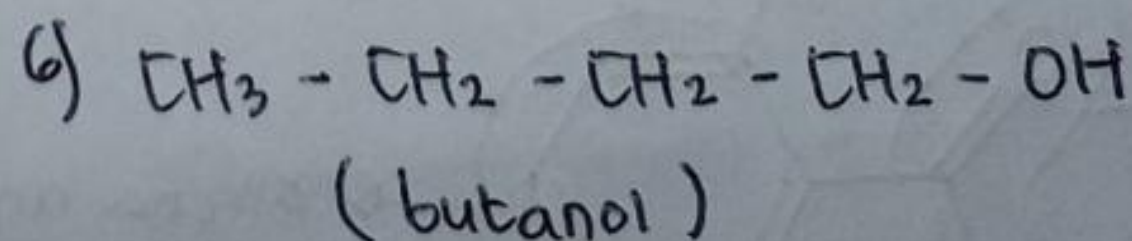 6) CH3 - CH2 - CH2 - CH2 - OH
(butanol)